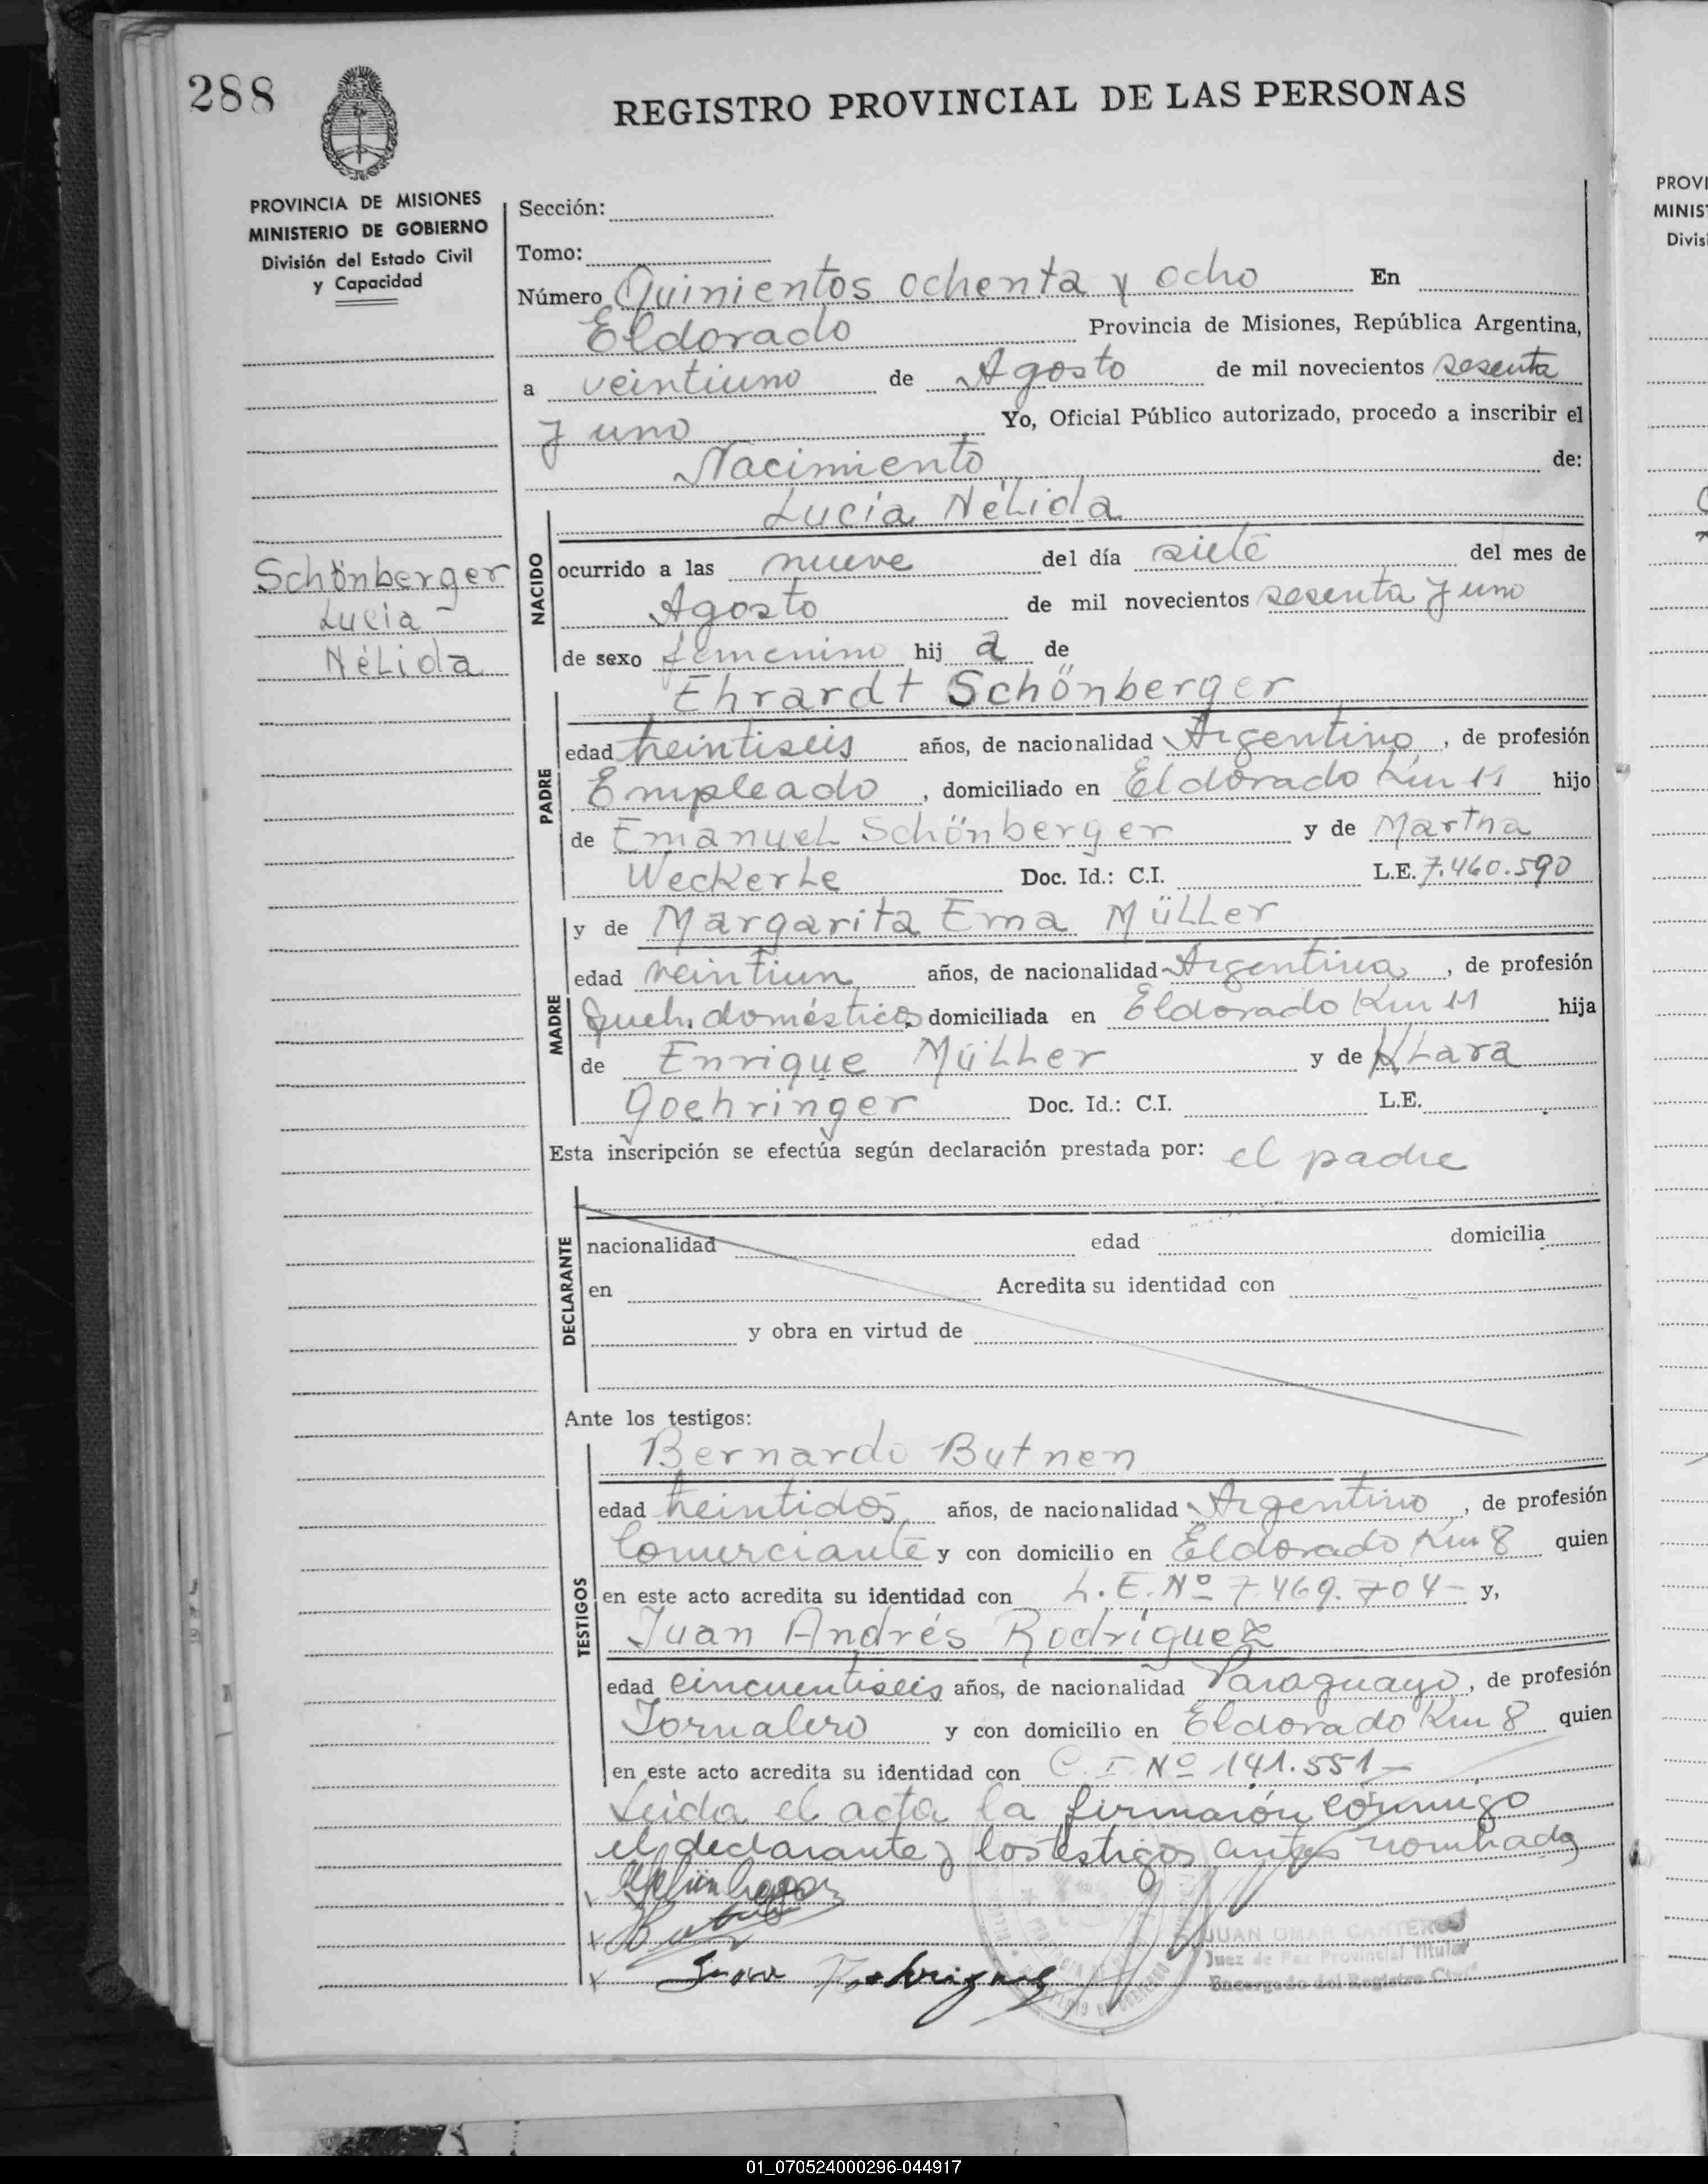 288
REGISTRO PROVINCIAL DE LAS PERSONAS
PROVINCIA DE MISIONES
MINISTERIO DE GOBIERNO
División del Estado Civil
y Capacidad
Sección:
Tomo:
Número Quinientos ochenta y ocho En
Eldorado Provincia de Misiones, República Argentina,
a veintiuno de Agosto de mil novecientos sesenta
y uno Yo, Oficial Público autorizado, procedo a inscribir el
Nacimiento de:
Schönberger
Lucía -
Nélida
NACIDO
Lucía Nélida
ocurrido a las nueve del día siete del mes de
Agosto de mil novecientos sesenta y uno
de sexo femenino hij a de
PADRE
Ehrardt Schönberger
edad veintiseis años, de nacionalidad Argentino, de profesión
Empleado, domiciliado en Eldorado Km 11 hijo
de Emanuel Schönberger y de Martha
Weckerle Doc. Id.: C.I. L.E. 7.460.590
MADRE
y de Margarita Ema Müller
edad veintiun años, de nacionalidad Argentina, de profesión
Queh. domésticos domiciliada en Eldorado Km 11 hija
de Enrique Müller y de Klara
Goehringer Doc. Id.: C.I. L.E.
Esta inscripción se efectúa según declaración prestada por: el padre
DECLARANTE
nacionalidad edad domicilia
en Acredita su identidad con
y obra en virtud de
Ante los testigos:
TESTIGOS
Bernardo Butnen
edad veintidos años, de nacionalidad Argentino, de profesión
Comerciante y con domicilio en Eldorado Km 8 quien
en este acto acredita su identidad con L.E. Nº 7.469.704- y,
Juan Andrés Rodríguez
edad cincuentiseis años, de nacionalidad Paraguayo, de profesión
Jornalero y con domicilio en Eldorado Km 8 quien
en este acto acredita su identidad con C.I Nº 141.551-
Leida el acta la firmarón conmigo
el declarante y los testigos antes nombrados
Juan Rodriguez
JUAN OMAR CANTEROS
Juez de Paz Provincial Titular
Encargado del Registro Civil
PROVI
MINIS
Divis
01_070524000296-044917